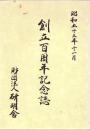 昭和五十五年十一月
創立百周年記念誌
財団法人研明會